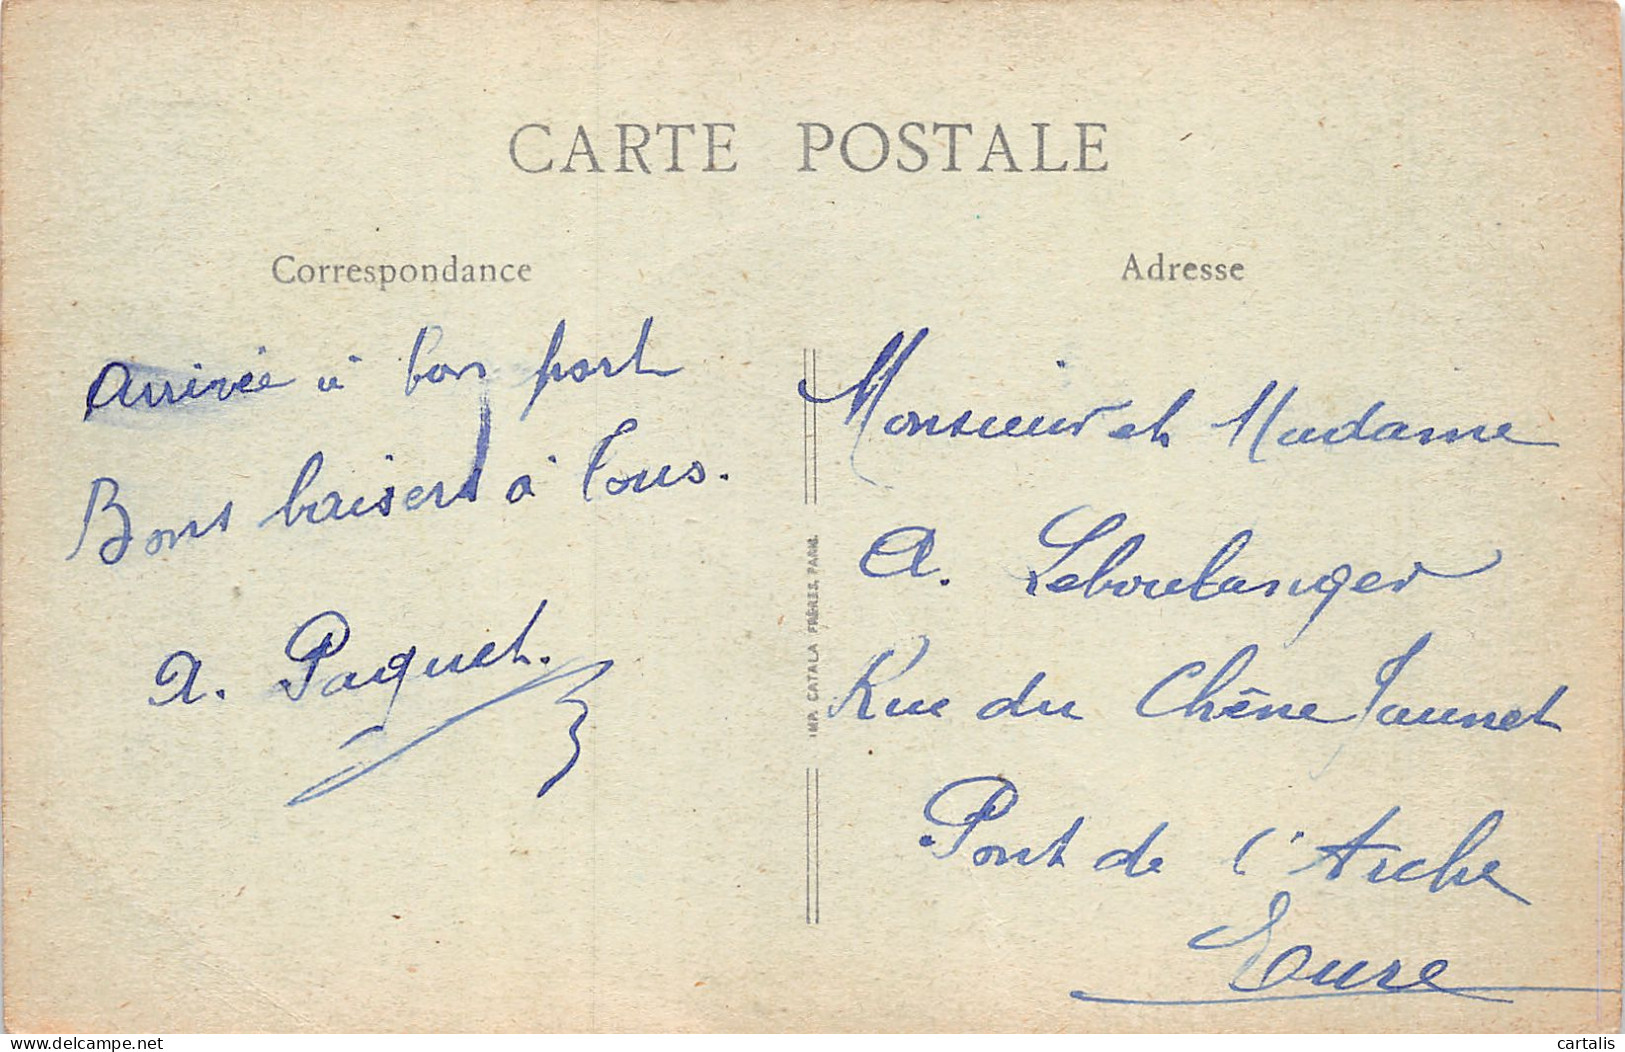 CARTE POSTALE
Correspondance
Arrivée à bon port
Bons baisers à Tous.
A. Paquet.
IMP. CATALA FRÈRES, PARIS.
Adresse
Monsieur et Madame
A. Leboulanger
Rue du Chêne Jaunet
Pont de l'Arche
Eure
delcampe.net
cartalis